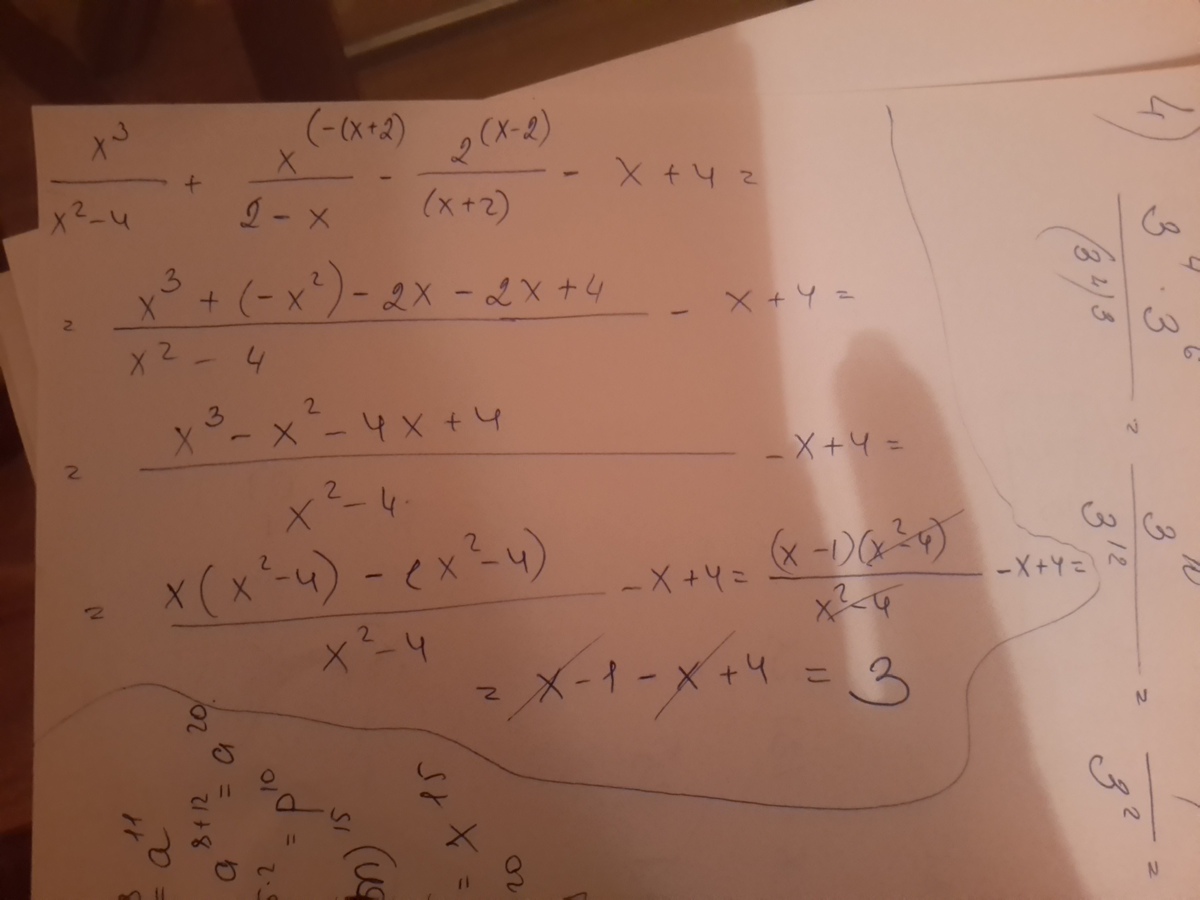 x³/(x²-4) + x^(-(x+2)/(2-x) - 2^(x-2)/(x+2) - x+4 =
= (x³+(-x²)-2x-2x+4)/(x²-4) - x+4 =
= (x³-x²-4x+4)/(x²-4) - x+4 =
= (x(x²-4)-(x²-4))/(x²-4) - x+4 = ((x-1)(x²-4))/(x²-4) - x+4 =
= x-1-x+4 = 3
4)
3⁴·3⁶/(3⁴)³ = 3¹⁰/3¹² = 1/3² =
= a¹¹
a⁸⁺¹² = a²⁰
5·2 = p¹⁰
)¹⁵
= x¹⁵
20